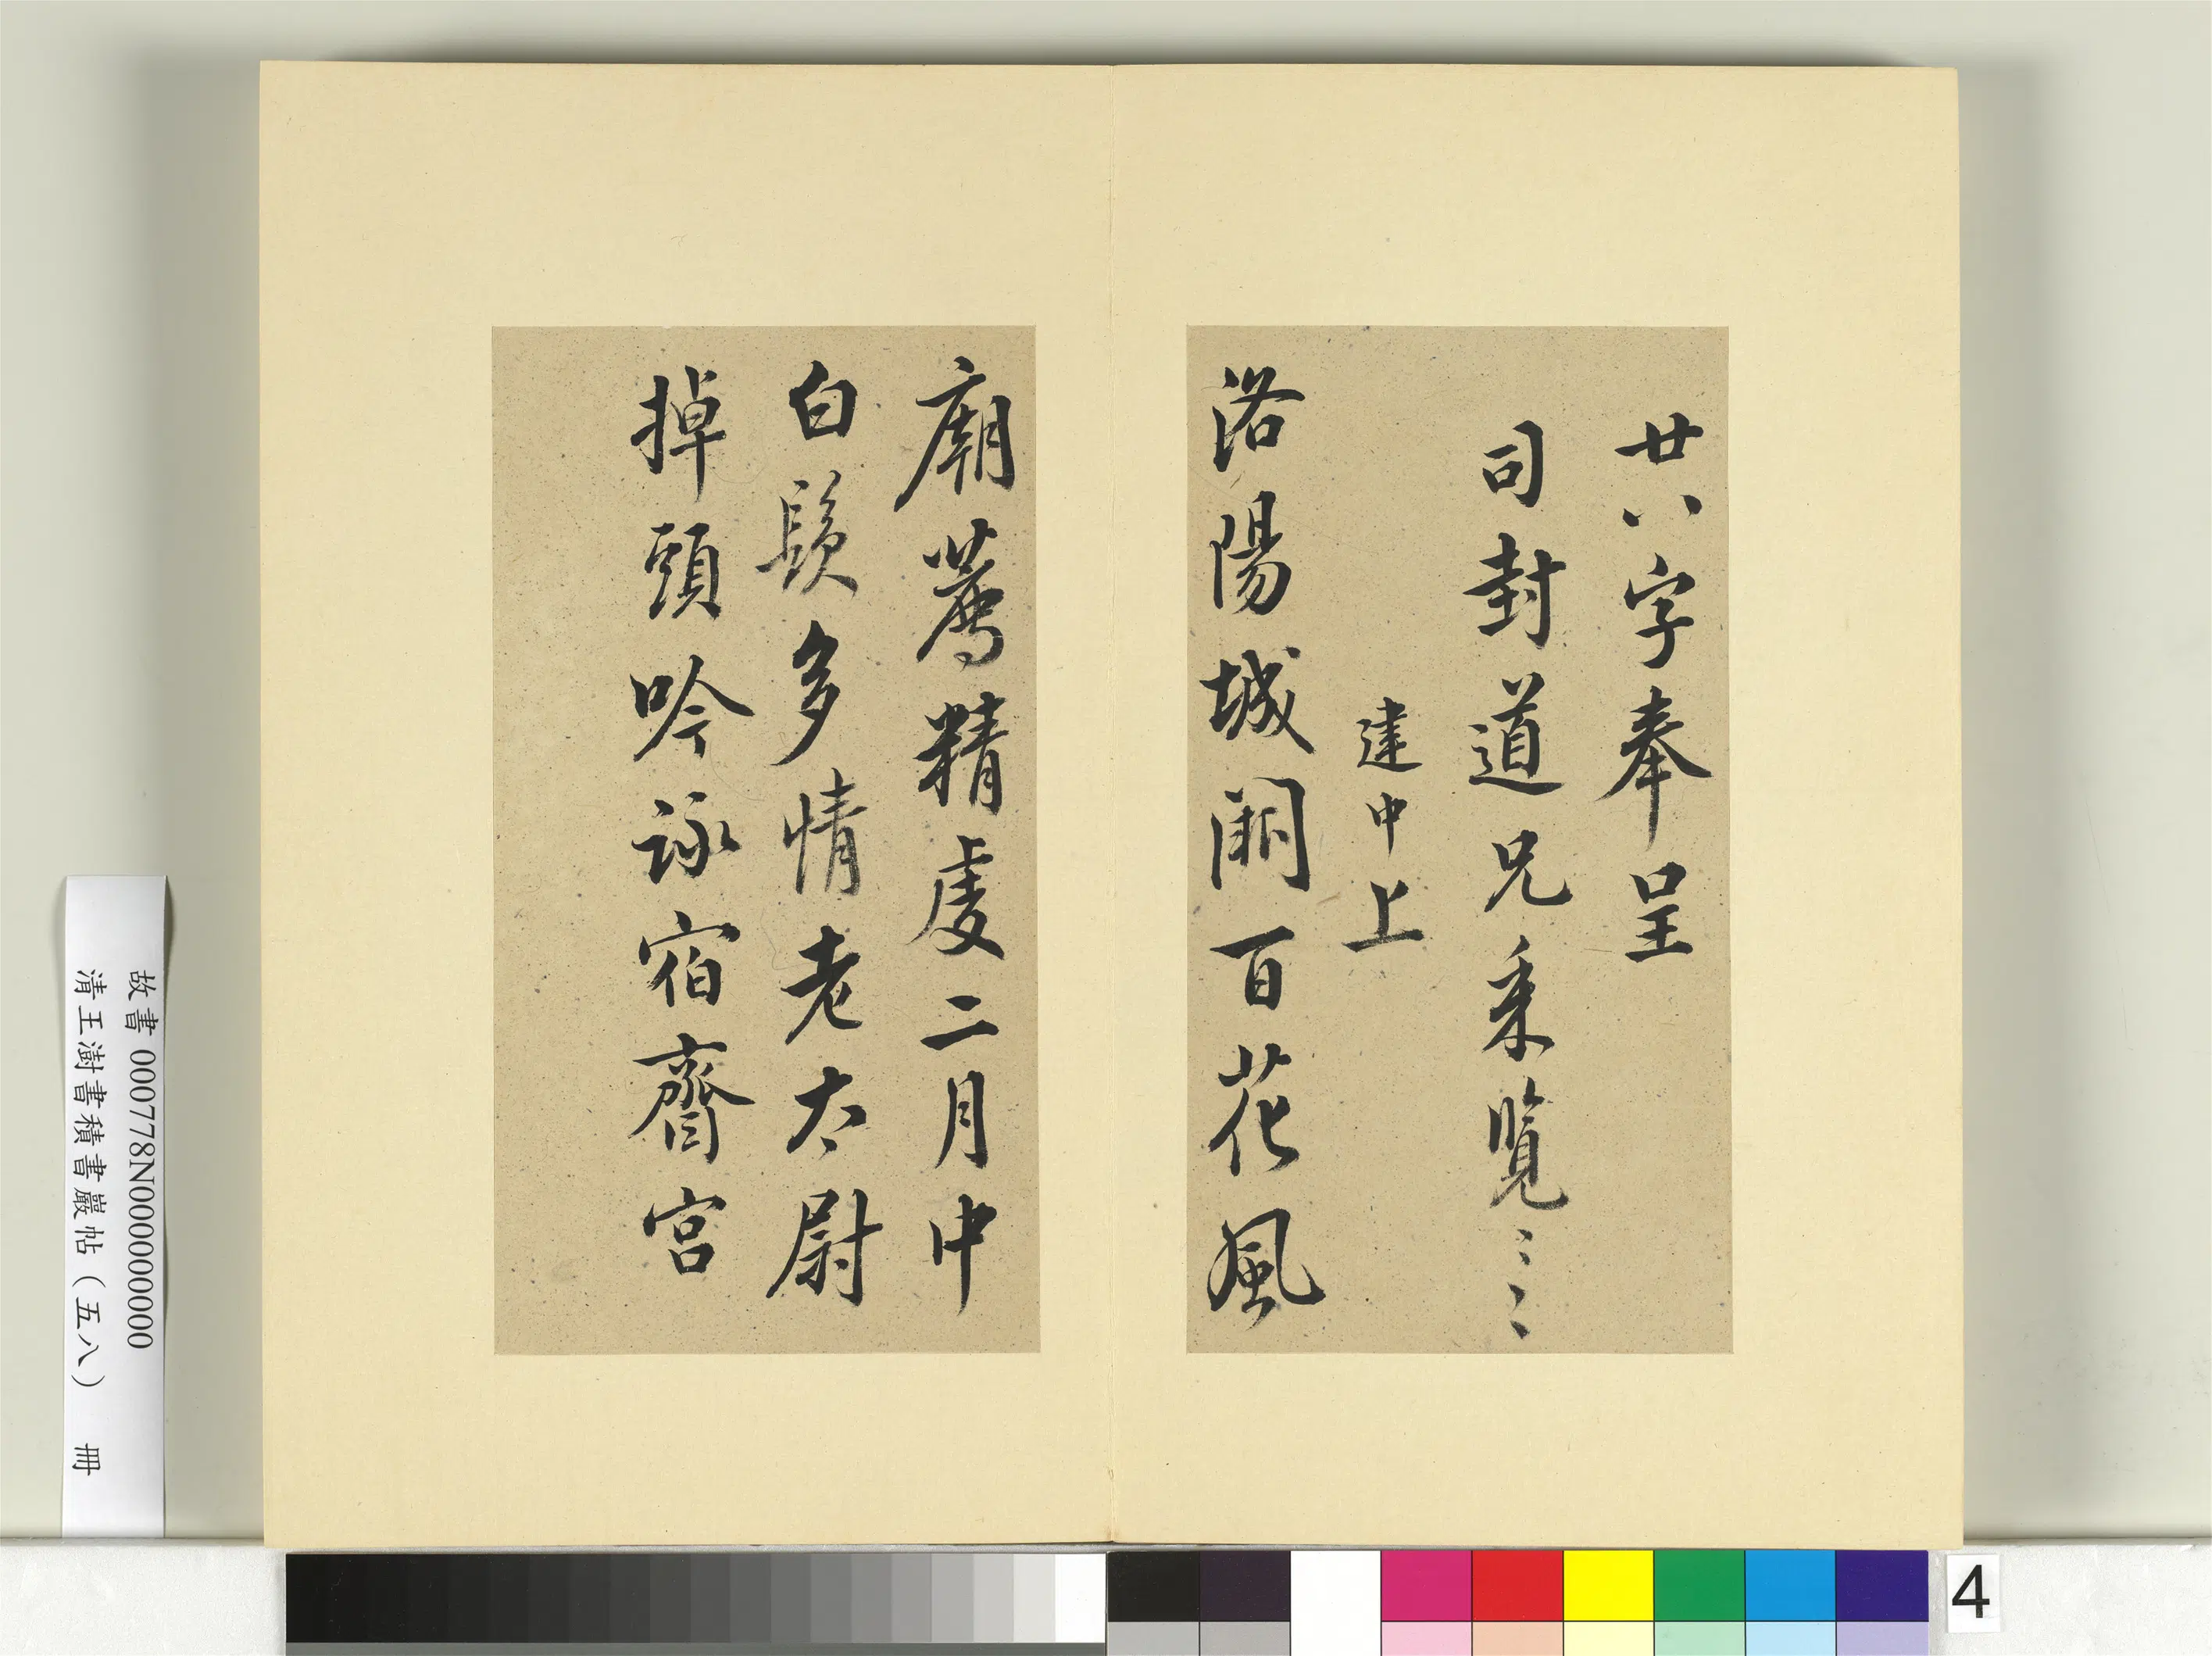 廿八字奉呈
司封道兄垂覽〻〻
建中上
洛陽城闕百花風
廟薦精虔二月中
白髮多情老太尉
掉頭吟詠宿齋宮
故書 000778N000000000
清王澍書積書巖帖（五八） 冊
4